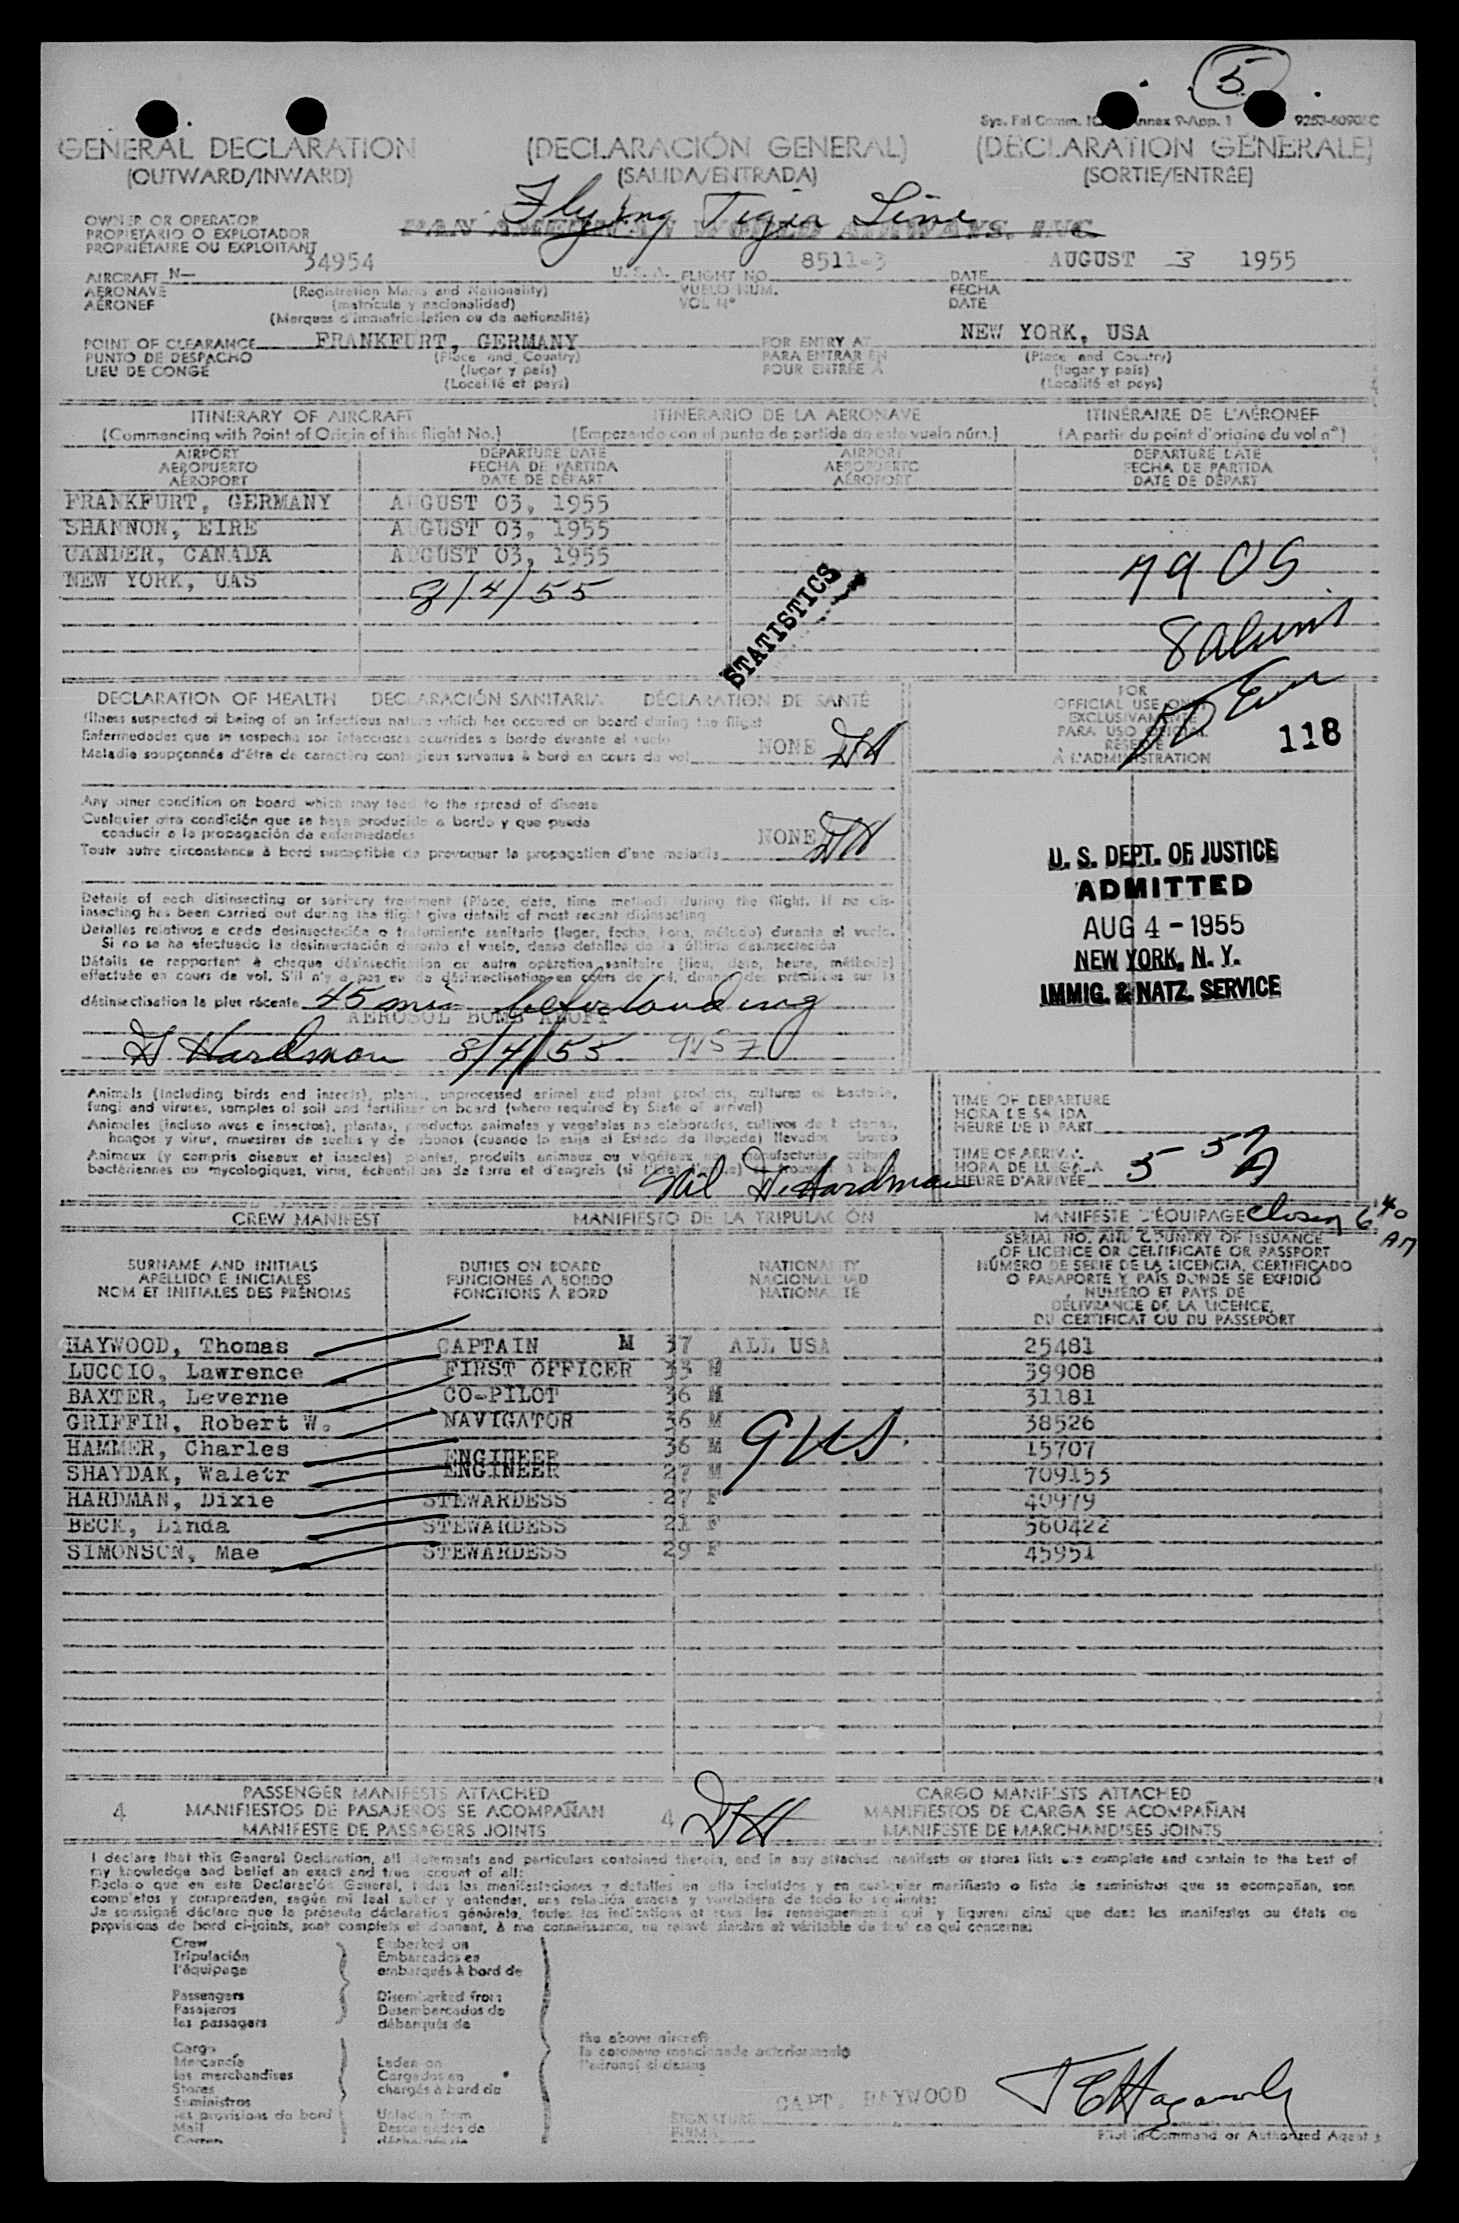 5
Sys. Fal Comm. Annex 9-App. 1
GENERAL DECLARATION (DECLARACIÓN GENERAL) (DECLARATION GÉNÉRALE)
(OUTWARD/INWARD) (SALIDA/ENTRADA) (SORTIE/ENTRÉE)
Flying Tiger Line
OWNER OR OPERATOR
PROPIETARIO O EXPLOTADOR PAN AMERICAN WORLD AIRWAYS, INC.
PROPRIÉTAIRE OU EXPLOITANT
34954 8511-3 AUGUST 3 1955
AIRCRAFT N— U.S.A. FLIGHT NO. DATE
AERONAVE (Registration Marks and Nationality) VUELO NUM. FECHA
AÉRONEF (matrícula y nacionalidad) VOL Nº DATE
(Marques d'immatriculation ou de nationalité)
POINT OF CLEARANCE FRANKFURT, GERMANY FOR ENTRY AT NEW YORK, USA
PUNTO DE DESPACHO (Place and Country) PARA ENTRAR EN (Place and Country)
LIEU DE CONGÉ (lugar y país) POUR ENTRÉE À (lugar y país)
(Localité et pays) (Localité et pays)
ITINERARY OF AIRCRAFT ITINERARIO DE LA AERONAVE ITINÉRAIRE DE L'AÉRONEF
(Commencing with Point of Origin of this flight No.) (Empezando con el punto de partida de este vuelo núm.) (A partir du point d'origine du vol nº)
AIRPORT DEPARTURE DATE AIRPORT DEPARTURE DATE
AEROPUERTO FECHA DE PARTIDA AEROPUERTO FECHA DE PARTIDA
AÉROPORT DATE DE DÉPART AÉROPORT DATE DE DÉPART
FRANKFURT, GERMANY AUGUST 03, 1955
SHANNON, EIRE AUGUST 03, 1955
GANDER, CANADA AUGUST 03, 1955
NEW YORK, UAS 8/4/55
79 US
8 Aliens
STATISTICS
DECLARATION OF HEALTH DECLARACIÓN SANITARIA DÉCLARATION DE SANTÉ
FOR
OFFICIAL USE ONLY
EXCLUSIVAMENTE
PARA USO OFICIAL
RÉSERVÉ
À L'ADMINISTRATION
118
Illness suspected of being of an infectious nature which has occured on board during the flight
Enfermedades que se sospecha son infecciosas ocurridas a bordo durante el vuelo
Maladie soupçonnée d'être de caractère contagieux survenue à bord en cours de vol NONE DH
Any other condition on board which may lead to the spread of disease
Cualquier otra condición que se haya producido a bordo y que pueda
conducir a la propagación de enfermedades
Toute autre circonstance à bord susceptible de provoquer la propagation d'une maladie NONE DH
Details of each disinsecting or sanitary treatment (Place, date, time method) during the flight. If no dis-
insecting has been carried out during the flight give details of most recent disinsecting
Detalles relativos a cada desinsectación o tratamiento sanitario (lugar, fecha, hora, método) durante el vuelo.
Si no se ha efectuado la desinsectación durante el vuelo, dense detalles de la última desinsectación
Détails se rapportant à chaque désinsectisation ou autre opération sanitaire (lieu, date, heure, méthode)
effectuée en cours de vol. S'il n'y a pas eu de désinsectisation en cours de vol, donner des précisions sur la
désinsectisation la plus récente 45 min before landing
AEROSOL BOMB ALOFT
D Hardman 8/4/55
U. S. DEPT. OF JUSTICE
ADMITTED
AUG 4 - 1955
NEW YORK, N. Y.
IMMIG. & NATZ. SERVICE
Animals (including birds and insects), plants, unprocessed animal and plant products, cultures of bacteria,
fungi and viruses, samples of soil and fertilizer on board (where required by State of arrival)
Animales (incluso aves e insectos), plantas, productos animales y vegetales no elaborados, cultivos de bacterias,
hongos y virus, muestras de suelos y de abonos (cuando lo exija el Estado de llegada) llevados a bordo
Animaux (y compris oiseaux et insectes) plantes, produits animaux ou végétaux non manufacturés, cultures
bactériennes ou mycologiques, virus, échantillons de terre et d'engrais (si l'État l'exige) se trouvant à bord
Nil D. Hardman
TIME OF DEPARTURE
HORA DE SALIDA
HEURE DE DÉPART
TIME OF ARRIVAL
HORA DE LLEGADA
HEURE D'ARRIVÉE 5 57 A
CREW MANIFEST MANIFIESTO DE LA TRIPULACIÓN MANIFESTE D'ÉQUIPAGE Closed 6 40 AM
SURNAME AND INITIALS DUTIES ON BOARD NATIONALITY
APELLIDO E INICIALES FUNCIONES A BORDO NACIONALIDAD
NOM ET INITIALES DES PRÉNOMS FONCTIONS À BORD NATIONALITÉ
SERIAL NO. AND COUNTRY OF ISSUANCE
OF LICENCE OR CERTIFICATE OR PASSPORT
NÚMERO DE SERIE DE LA LICENCIA, CERTIFICADO
O PASAPORTE Y PAÍS DONDE SE EXPIDIÓ
NUMÉRO ET PAYS DE
DÉLIVRANCE DE LA LICENCE,
DU CERTIFICAT OU DU PASSEPORT
HAYWOOD, Thomas CAPTAIN M 37 ALL USA 25481
LUCCIO, Lawrence FIRST OFFICER 33 M 39908
BAXTER, Leverne CO-PILOT 36 M 31181
GRIFFIN, Robert W. NAVIGATOR 36 M 38526
HAMMER, Charles ENGINEER 36 M 15707
9 US.
SHAYDAK, Waletr ENGINEER 27 M 709155
HARDMAN, Dixie STEWARDESS 27 F 40979
BECK, Linda STEWARDESS 21 F 560422
SIMONSON, Mae STEWARDESS 29 F 45951
PASSENGER MANIFESTS ATTACHED CARGO MANIFESTS ATTACHED
4 MANIFIESTOS DE PASAJEROS SE ACOMPAÑAN 4 DH MANIFIESTOS DE CARGA SE ACOMPAÑAN
MANIFESTE DE PASSAGERS JOINTS MANIFESTE DE MARCHANDISES JOINTS
I declare that this General Declaration, all statements and particulars contained therein, and in any attached manifests or stores lists are complete and contain to the best of
my knowledge and belief an exact and true account of all:
Declaro que en esta Declaración General, todas las manifestaciones y detalles en ella incluidos y en cualquier manifiesto o lista de suministros que se acompañan, son
completos y comprenden, según mi leal saber y entender, una relación exacta y verdadera de todo lo siguiente:
Je soussigné déclare que la présente déclaration générale, toutes les indications et tous les renseignements qui y figurent ainsi que dans les manifestes ou états de
provisions de bord ci-joints, sont complets et donnent, à ma connaissance, un relevé sincère et véritable de tout ce qui concerne:
Crew Embarked on
Tripulación Embarcados en
l'équipage embarqués à bord de
Passengers Disembarked from
Pasajeros Desembarcados de
les passagers débarqués de
the above aircraft
la aeronave mencionada anteriormente
l'aéronef ci-dessus
Cargo
Mercancía Laden on
les merchandises Cargados en
Stores chargés à bord de
Suministros
les provisions de bord Unladen from
Mail Descargados de
Correo déchargés de
CAPT. HAYWOOD
SIGNATURE
FIRMA
Pilot in Command or Authorized Agent